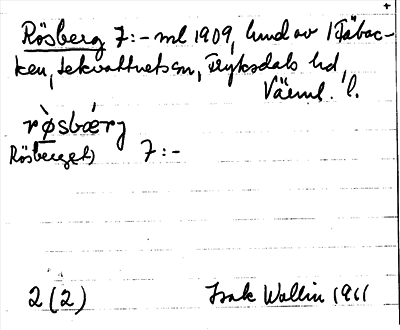 Rösberg 7:- ml 1909, hund av I Fäbac-
ken, Lekvattnets sn, Fryksdals hd,
Värml. l.
rø̀sbærg
Rösberget) 7:-
2(2) Isak Wallin 1911